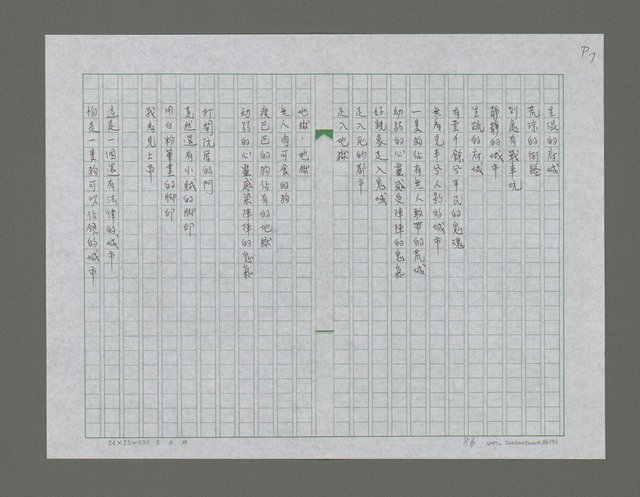 P7
生澀的府城
荒涼的街路
到處有戰車坑
靜靜的城市
生疏的府城
有壹千餘个平民的鬼魂
無看見半个人影的城市
一隻狗佔有無人敢帶的荒城
幼弱的心靈感受陣陣的鬼氣
好親像走入鬼域
走入死的都市
走入地獄
地獄!地獄
無人肉可食的狗
瘦巴巴的狗佔有的地獄
幼弱的心靈感染陣陣的鬼氣
打開阮厝的門
竟然還有小賊的腳印
用白粉筆畫的腳印
我看見上帝
這是一個還有法律的城市
怕是一隻狗可以佔領的城市
24×25=600
86